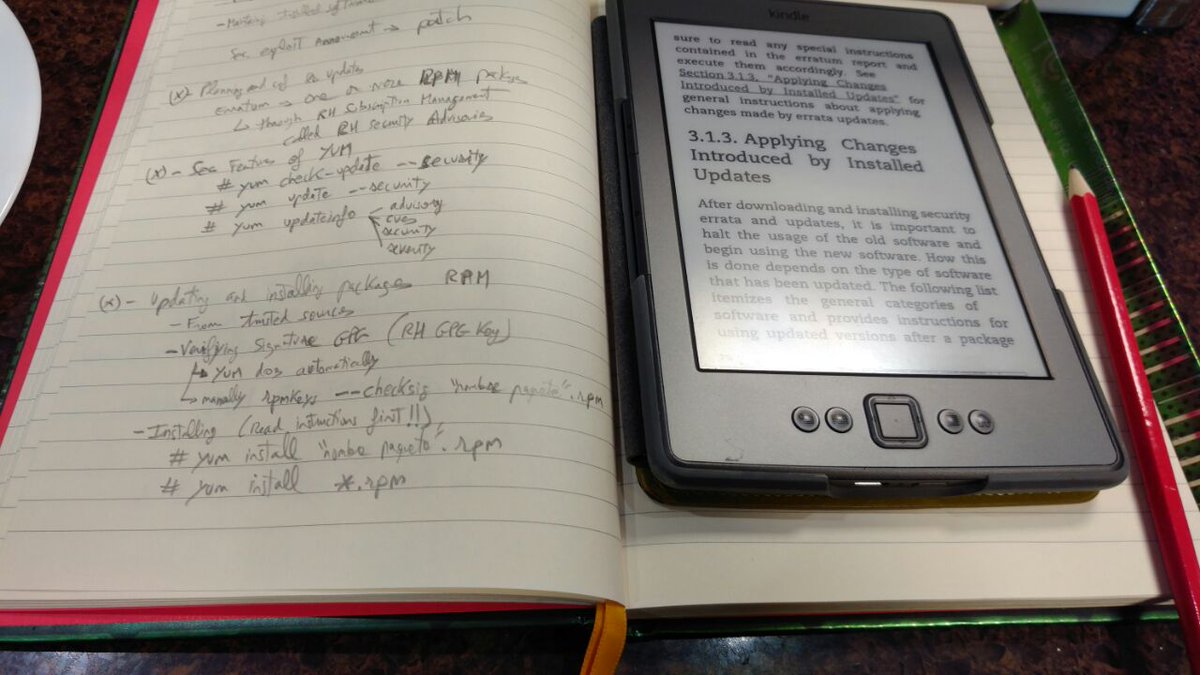 - Maintaining trusted software
Sec. exploit announcement → patch
(x) - Planning and cf Sec updates
erratum → one or more RPM packages
↳ through RH Subscription Management
called RH Security Advisories
(x) - Sec Features of YUM
# yum check-update --security
# yum update --security
# yum updateinfo
advisory
cves
security
severity
(x) - Updating and installing packages RPM
- From trusted sources
- Verifying Signature GPG (RH GPG Key)
↳ YUM does automatically
↳ manually rpmkeys --checksig "nombre paquete".rpm
- Installing (Read instructions first!!)
# yum install "nombre paquete".rpm
# yum install *.rpm
kindle
sure to read any special instructions
contained in the erratum report and
execute them accordingly. See
Section 3.1.3, "Applying Changes
Introduced by Installed Updates" for
general instructions about applying
changes made by errata updates.
3.1.3. Applying Changes
Introduced by Installed
Updates
After downloading and installing security
errata and updates, it is important to
halt the usage of the old software and
begin using the new software. How this
is done depends on the type of software
that has been updated. The following list
itemizes the general categories of
software and provides instructions for
using updated versions after a package